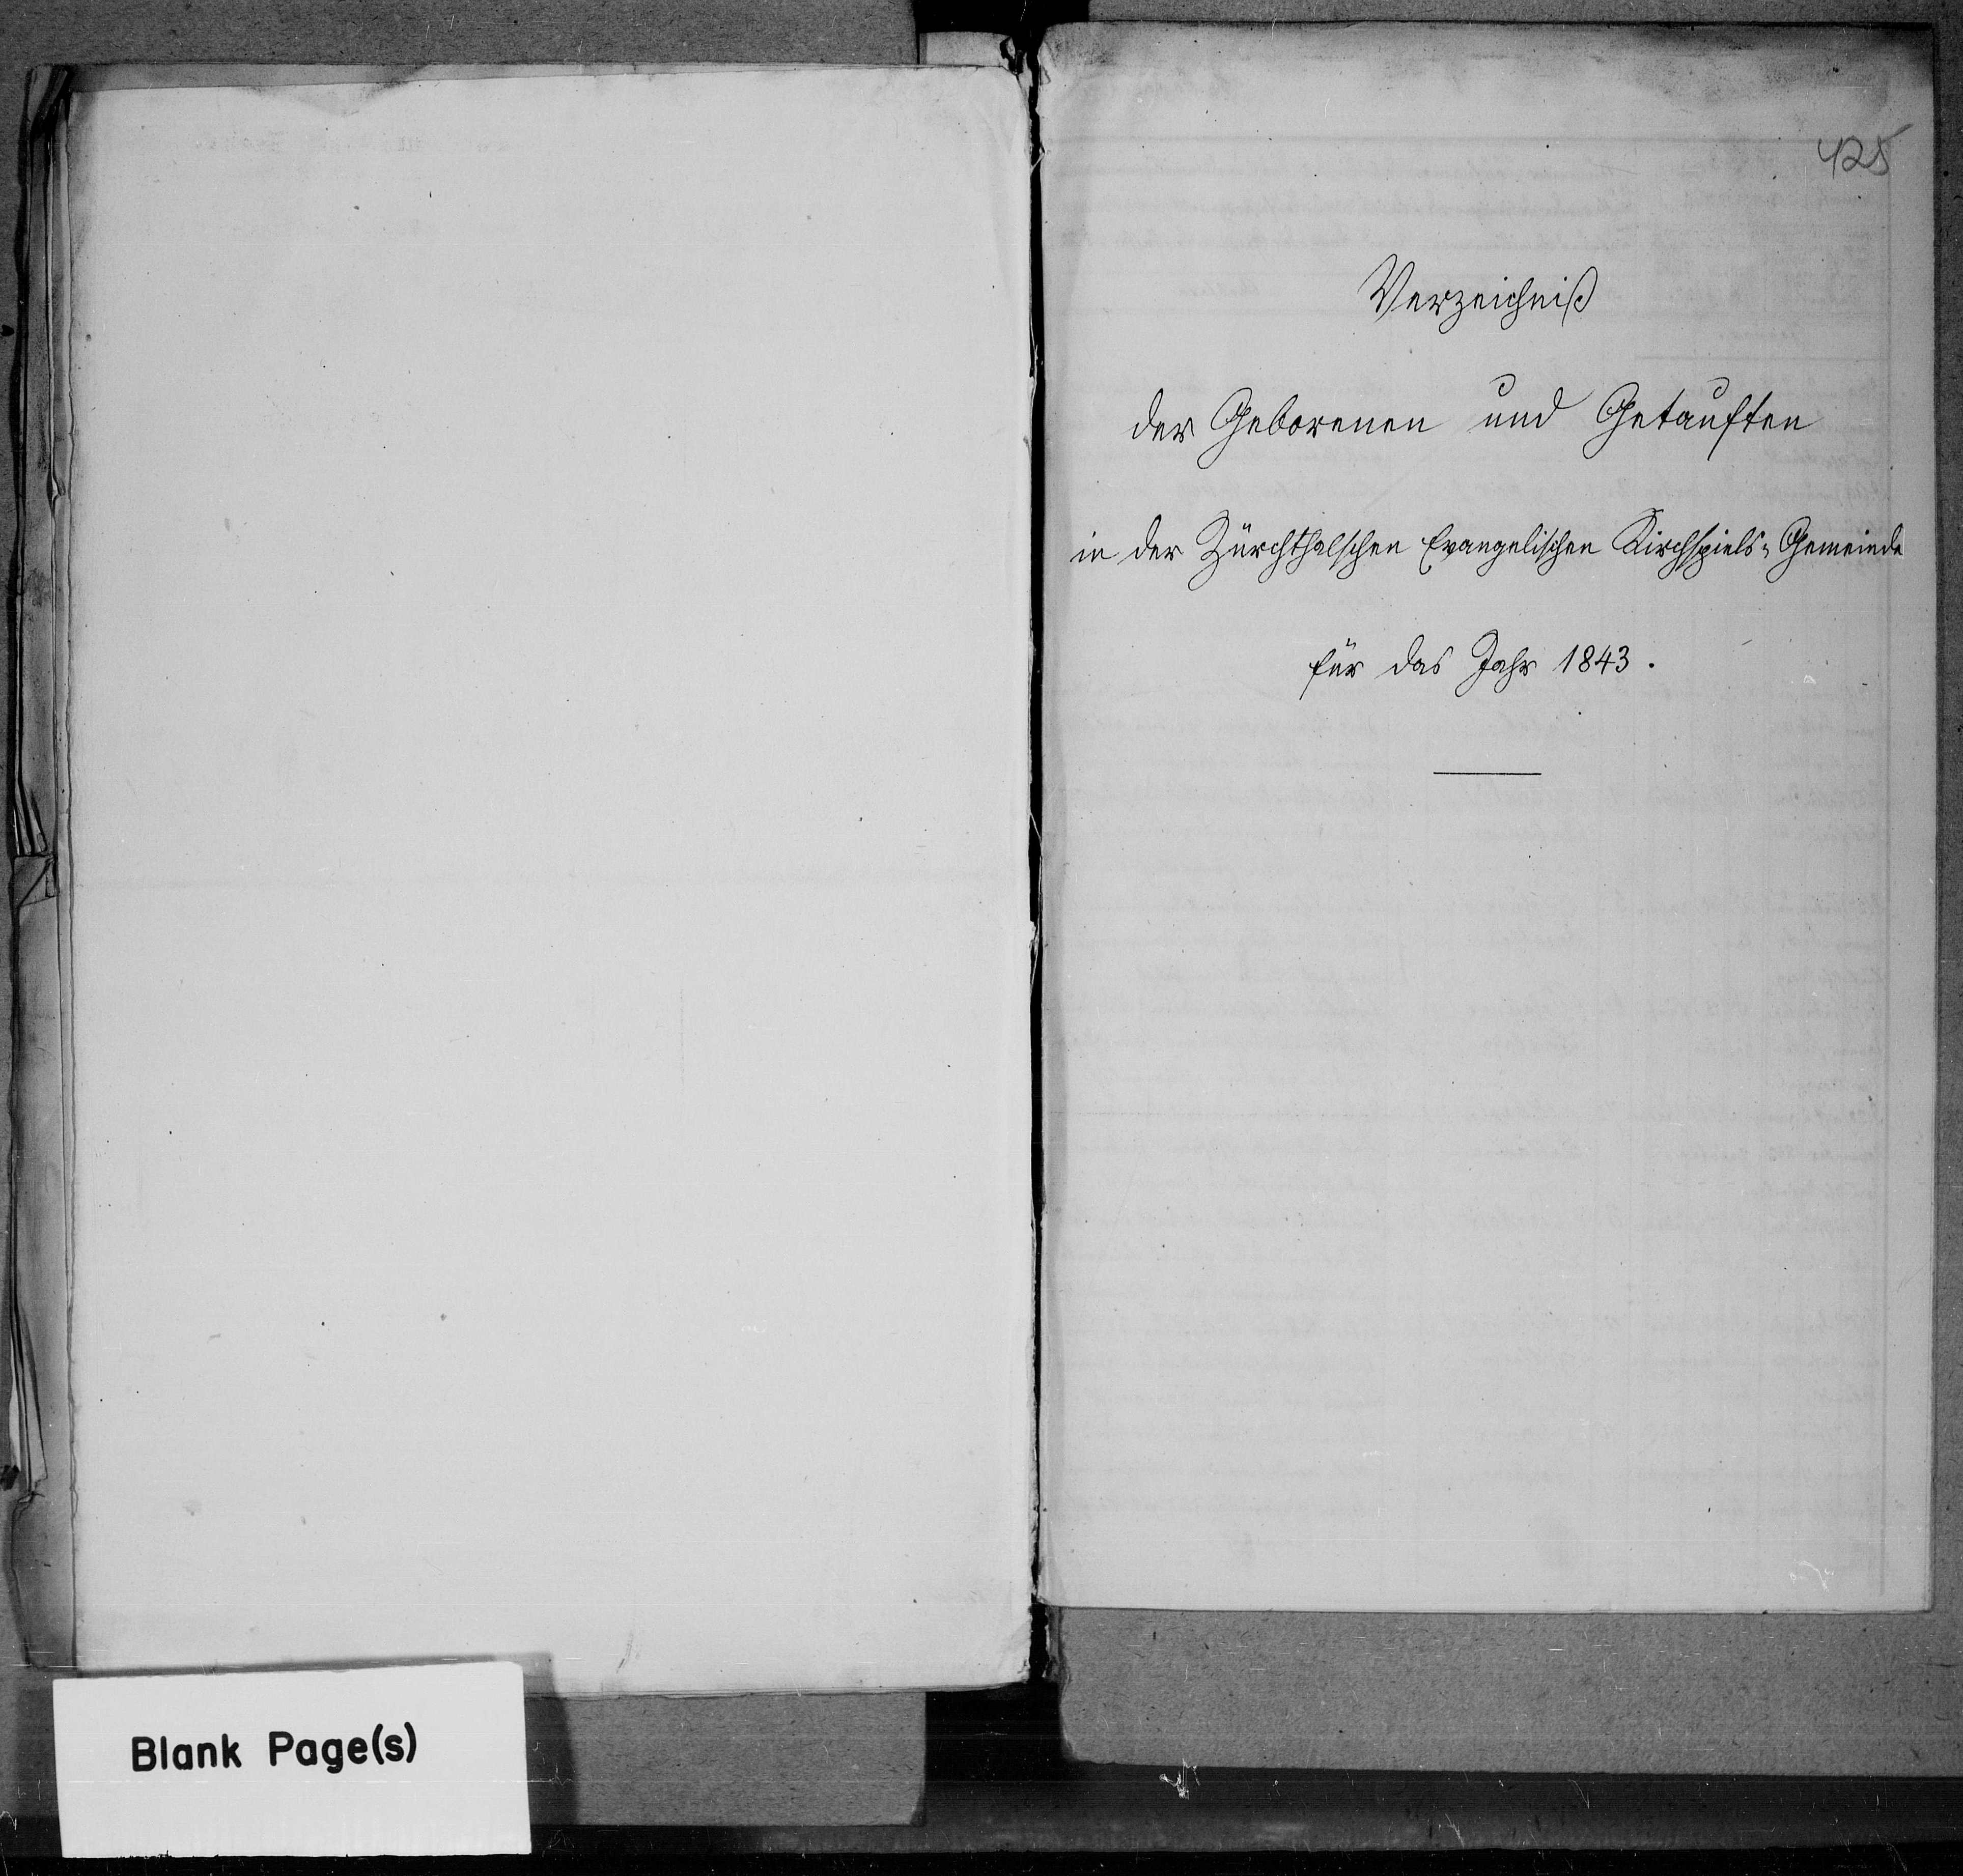 425
Verzeichniß
der Geborenen und Getauften
in der Zürchthalschen Evangelischen Kirchspiels-Gemeinde
für das Jahr 1843.
Blank Page(s)